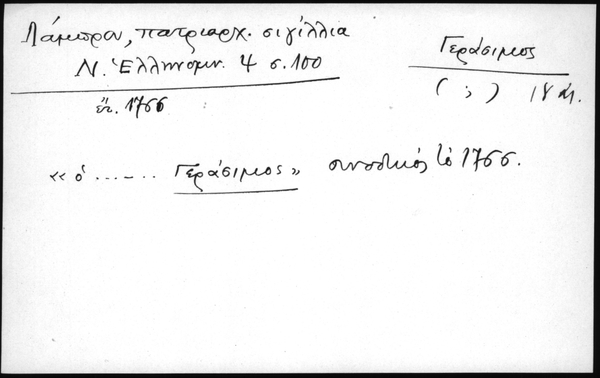 Λάμπρου, πατριαρχ. σιγίλλια
Ν. Ἑλληνομν. 4 σ. 100
ἔτ. 1766
Γεράσιμος
( ; ) 18 αἰ.
«ὁ ...-.. Γεράσιμος» συνοδικός τό 1766.